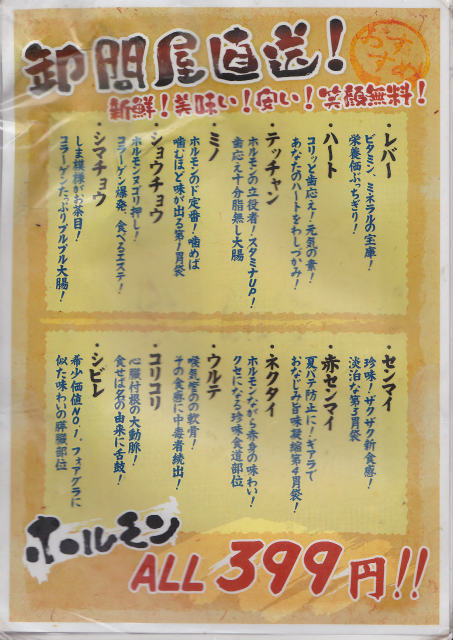 卸問屋直送!
おすすめ
新鮮!美味い!安い!笑顔無料!
・レバー
ビタミン、ミネラルの宝庫!
栄養価ぶっちぎり!
・ハート
コリッと歯応え!元気の素!
あなたのハートをわしづかみ!
・テッチャン
ホルモンの立役者!スタミナUP!
歯応え十分脂無し大腸
・ミノ
ホルモンのド定番!噛めば
噛むほど味が出る第1胃袋
・ショウチョウ
ホルモンヌゴリ押し!
コラーゲン爆発、食べるエステ!
・シマチョウ
しま模様がお茶目!
コラーゲンたっぷりプルプル大腸!
・センマイ
珍味!ザクザク新食感!
淡泊な第3胃袋
・赤センマイ
夏バテ防止に!ギアラで
おなじみ旨味凝縮第4胃袋!
・ネクタイ
ホルモンながら赤身の味わい!
クセになる珍味食道部位
・ウルテ
喉気管の軟骨!
その食感に中毒者続出!
・コリコリ
心臓付根の大動脈!
食せば名の由来に舌鼓!
・シビレ
希少価値NO.1、フォアグラに
似た味わいの膵臓部位
ホールモン
ALL 399円!!